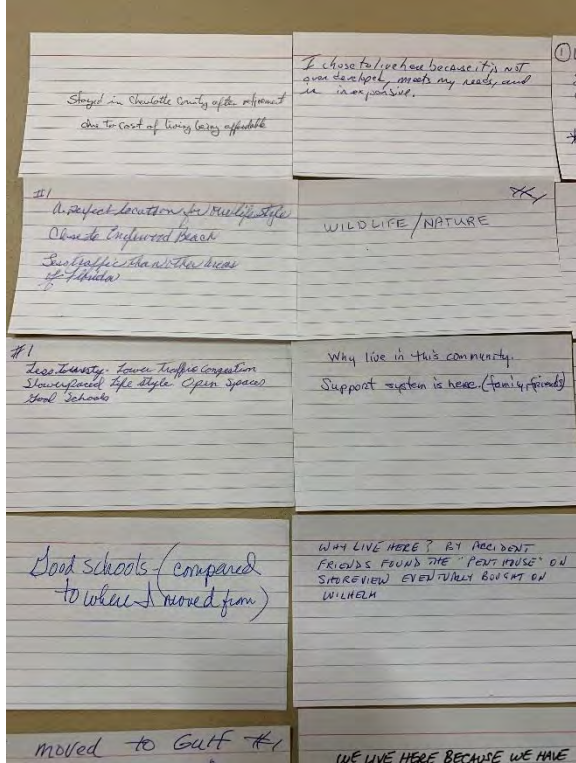 Stayed in Charlotte County after retirement
due to cost of living being affordable
I chose to live here because it is not
over developed, meets my needs, and
is inexpensive.
1
#1
A perfect location for our life style
Close to Englewood Beach
Less traffic than other areas
of Florida
#1
WILDLIFE/NATURE
#1
Less Density - Lower Traffic Congestion
Slower paced Life Style Open Spaces
Good Schools
Why live in this community.
Support system is here. (family, friends)
Good schools - (compared
to where I moved from)
WHY LIVE HERE? BY ACCIDENT
FRIENDS FOUND THE "PENTHOUSE" ON
SHOREVIEW EVENTUALLY BOUGHT ON
WILHELM
moved to Gulf #1
WE LIVE HERE BECAUSE WE HAVE